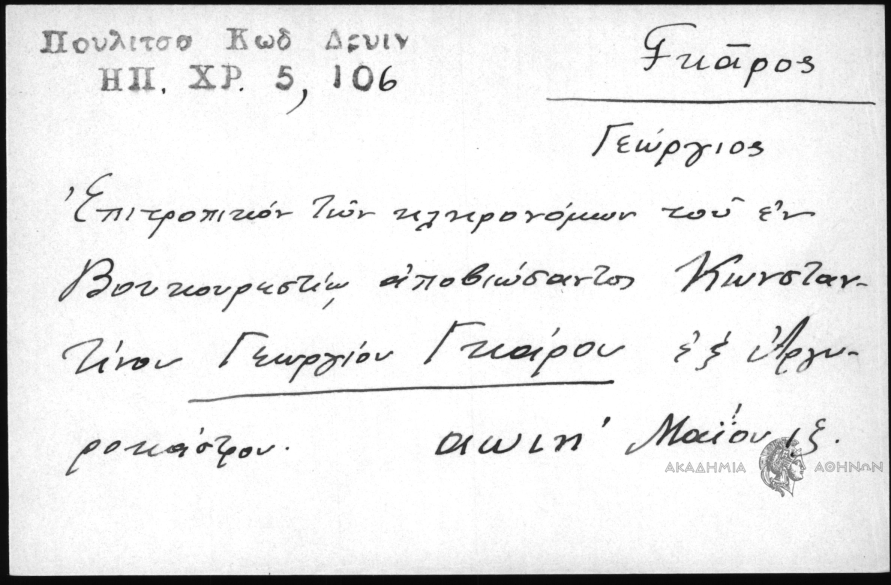 Πουλιτσα Κωδ Δρυιν
ΗΠ. ΧΡ. 5, 106
Γκᾶρος
Γεώργιος
Ἐπιτροπικόν τῶν κληρονόμων τοῦ ἐν
Βουκουρεστίῳ ἀποβιώσαντος Κωνσταν-
τίνου Γεωργίου Γκάρου ἐξ Ἀργυ-
ροκάστρου. αωιη' Μαΐου
ΑΚΑΔΗΜΙΑ ΑΘΗΝΩΝ